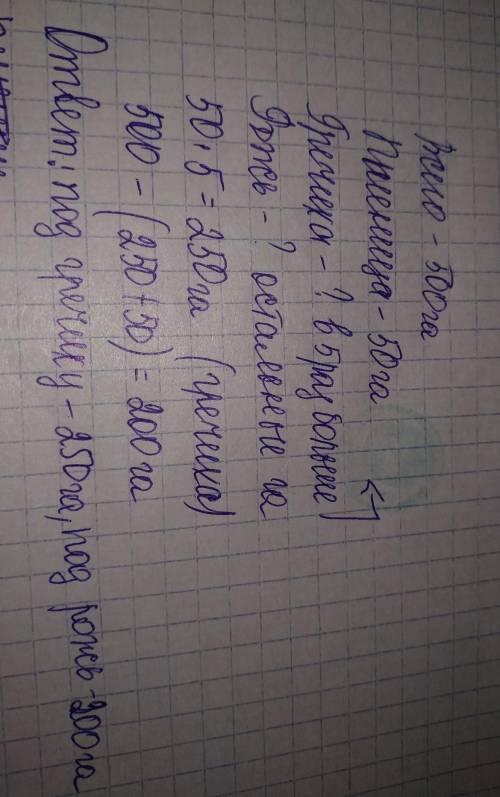 Всего - 500 га
Пшеница - 50 га
Гречиха - ? в 5 раз больше
Рожь - ? остальные га
50 · 5 = 250 га (гречиха)
500 - (250 + 50) = 200 га
Ответ: под гречиху - 250 га, под рожь - 200 га